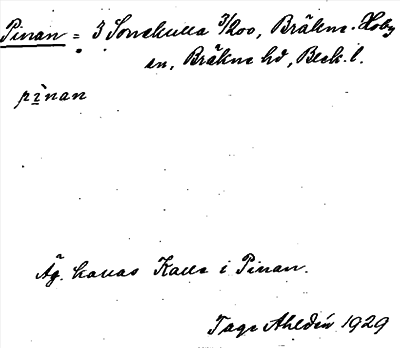 Pinan = 3 Sonekulla 3/200, Bräkne-Hoby
sn, Bräkne hd, Blek. l.
pìnan
Äg. kallas Kalle i Pinan.
Tage Ahldén 1929